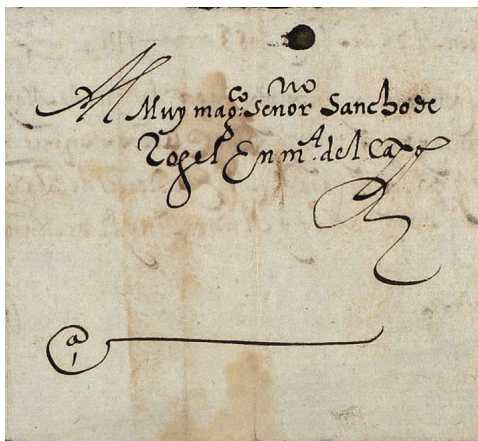 Al Muy mag:co Senor no Sancho de
Rogel En m.A del
a